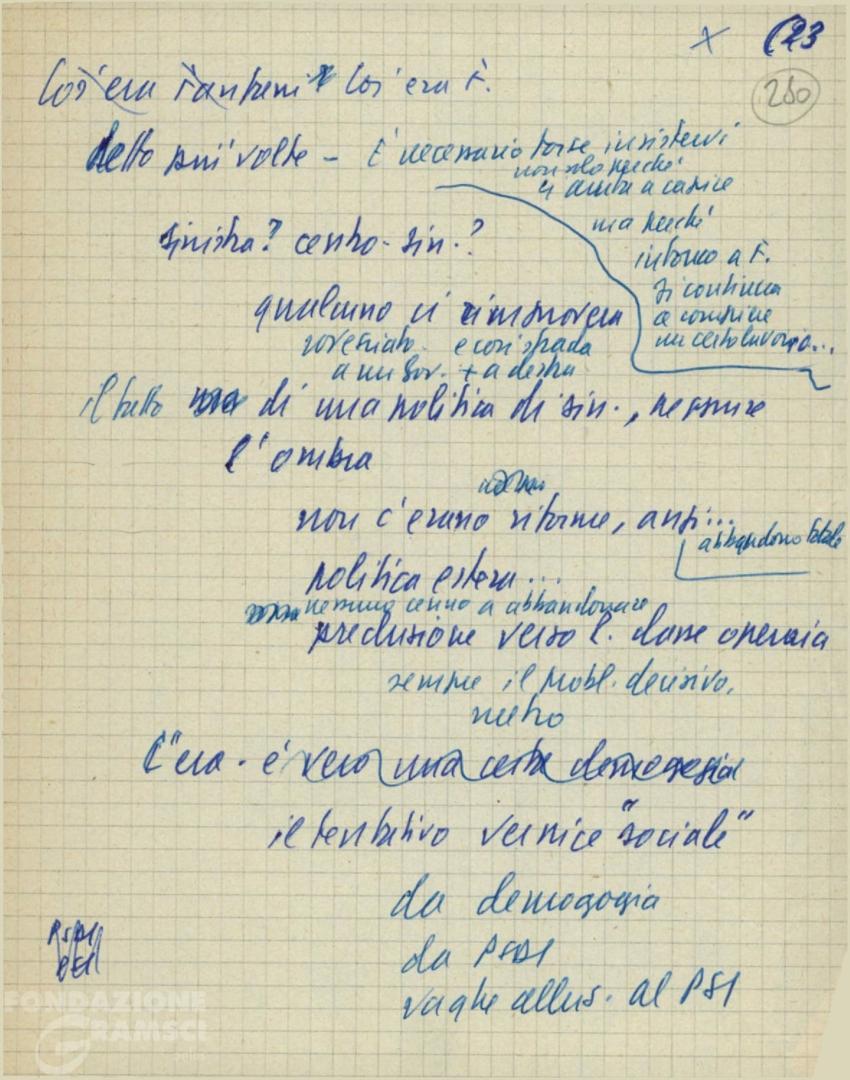 (23
250
Cos'era Fanfani Cos'era F.
detto più volte - È necessario forse insistervi
non solo perché
si aiuta a capire
ma perché
intorno a F.
si continua
a compiere
un certo lavorio...
sinistra? centro-sin.?
qualcuno ci rimprovera
rovesciato e con spada
a un gov. + a destra
il fatto di una politica di sin., neppure
l'ombra
non c'erano riforme, anzi...
abbandono totale
politica estera...
nessuno cenno a abbandonare
preclusione verso l. classe operaia
sempre il probl. decisivo,
metro
C'era - è vero una certa demagogia
il tentativo vernice "sociale"
da demagogia
da PSDI
vaghe allus. al PSI
PSDI
PSI
FONDAZIONE
GRAMSCI